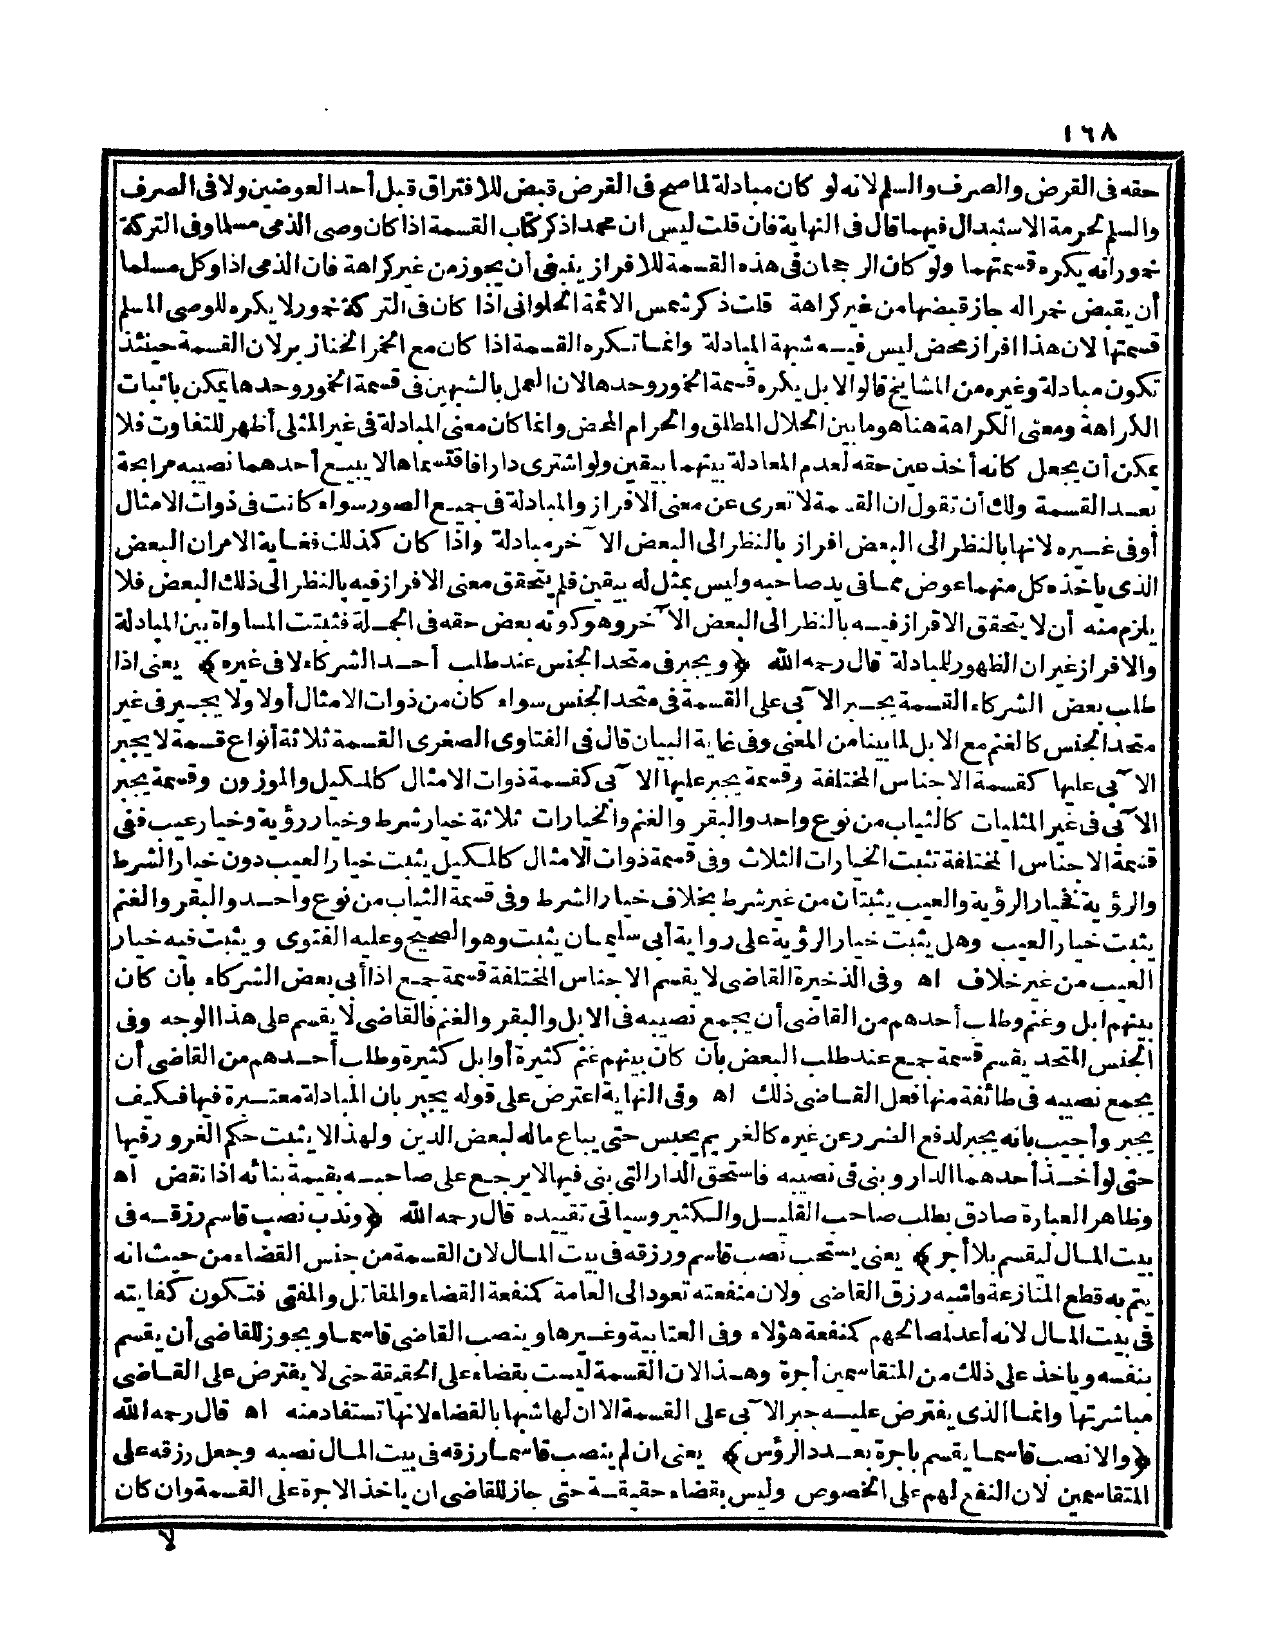 ١٦٨
حقه فى القرض والصرف والسلم لانه لو كان مبادلة لما صح فى القرض قبض للافتراق قبل أحد العوضين ولا فى الصرف
والسلم لحرمة الاستبدال فيهما قال فى النهاية فان قلت ليس ان محمدا ذكر كتاب القسمة اذا كان وصى الذمى مسلما وفى التركة
خمور انه يكره قسمتها ولو كان الرجحان فى هذه القسمة للافراز ينبغى أن يجوز من غير كراهة فان الذمى اذا وكل مسلما
أن يقبض خمرا له جاز قبضها من غير كراهة قلت ذكر شمس الائمة الحلوانى اذا كان فى التركة خمور لا يكره للوصى المسلم
قسمتها لان هذا افراز محض ليس فيه شبهة المبادلة وانما تكره القسمة اذا كان مع الخمر الخنازير لان القسمة حينئذ
تكون مبادلة وغيره من المشايخ قالوا لا بل يكره قسمة الخمور وحدها لان العمل بالشبهين فى قسمة الخمور وحدها يمكن باثبات
الكراهة ومعنى الكراهة هنا هو ما بين الحلال المطلق والحرام المحض وانما كان معنى المبادلة فى غير المثلى أظهر للتفاوت فلا
يمكن أن يجعل كانه أخذ عين حقه لعدم المعادلة بينهما بيقين ولو اشترى دارا فاقتسماها لا يبيع أحدهما نصيبه مرابحة
بعد القسمة ولك أن تقول ان القسمة لا تعرى عن معنى الافراز والمبادلة فى جميع الصور سواء كانت فى ذوات الامثال
أو فى غيره لانها بالنظر الى البعض افراز بالنظر الى البعض الآخر مبادلة واذا كان كذلك فغاية الامر ان البعض
الذى يأخذه كل منهما عوض عما فى يد صاحبه وليس بمثل له بيقين فلم يتحقق معنى الافراز فيه بالنظر الى ذلك البعض فلا
يلزم منه أن لا يتحقق الافراز فيه بالنظر الى البعض الآخر وهو كونه بعض حقه فى الجملة فثبتت المساواة بين المبادلة
والافراز غير ان الظهور للمبادلة قال رحمه الله ﴿ويجبر فى متحد الجنس عند طلب أحد الشركاء لا فى غيره﴾ يعنى اذا
طلب بعض الشركاء القسمة يجبر الآبى على القسمة فى متحد الجنس سواء كان من ذوات الامثال أو لا ولا يجبر فى غير
متحد الجنس كالغنم مع الابل لما بينا من المعنى وفى غاية البيان قال فى الفتاوى الصغرى القسمة ثلاثة أنواع قسمة لا يجبر
الآبى عليها كقسمة الاجناس المختلفة وقسمة يجبر عليها الآبى كقسمة ذوات الامثال كالمكيل والموزون وقسمة يجبر
الآبى فى غير المثليات كالثياب من نوع واحد والبقر والغنم والخيارات ثلاثة خيار شرط وخيار رؤية وخيار عيب ففى
قسمة الاجناس المختلفة تثبت الخيارات الثلاث وفى قسمة ذوات الامثال كالمكيل يثبت خيار العيب دون خيار الشرط
والرؤية فخيار الرؤية والعيب يثبتان من غير شرط بخلاف خيار الشرط وفى قسمة الثياب من نوع واحد والبقر والغنم
يثبت خيار العيب وهل يثبت خيار الرؤية على رواية أبى سليمان يثبت وهو الصحيح وعليه الفتوى ويثبت فيه خيار
العيب من غير خلاف اه وفى الذخيرة القاضى لا يقسم الاجناس المختلفة قسمة جمع اذا أبى بعض الشركاء بأن كان
بينهم ابل وغنم وطلب أحدهم من القاضى أن يجمع نصيبه فى الابل والبقر والغنم فالقاضى لا يقسم على هذا الوجه وفى
الجنس المتحد يقسم قسمة جمع عند طلب البعض بأن كان بينهم غنم كثيرة أو ابل كثيرة وطلب أحدهم من القاضى أن
يجمع نصيبه فى طائفة منها فعل القاضى ذلك اه وفى النهاية اعترض على قوله يجبر بان المبادلة معتبرة فيها فكيف
يجبر وأجيب بانه يجبر لدفع الضرر عن غيره كالغريم يحبس حتى يباع ماله لبعض الدين ولهذا لا يثبت حكم الغرور فيها
حتى لو أخذ أحدهما الدار وبنى فى نصيبه فاستحق الدار التى بنى فيها لا يرجع على صاحبه بقيمة بنائه اذا نقض اه
وظاهر العبارة صادق بطلب صاحب القليل والكثير وسياتى تقييده قال رحمه الله ﴿وندب نصب قاسم رزقه فى
بيت المال ليقسم بلا أجر﴾ يعنى يستحب نصب قاسم ورزقه فى بيت المال لان القسمة من جنس القضاء من حيث انه
يتم به قطع المنازعة فاشبه رزق القاضى ولان منفعته تعود الى العامة كمنفعة القضاء والمقاتل والمفتى فتكون كفايته
فى بيت المال لانه أعد لمصالحهم كمنفعة هؤلاء وفى العتابية وغيرها وينصب القاضى قاسما ويجوز للقاضى أن يقسم
بنفسه وياخذ على ذلك من المتقاسمين أجرة وهذا لان القسمة ليست بقضاء على الحقيقة حتى لا يفترض على القاضى
مباشرتها وانما الذى يفترض عليه جبر الآبى على القسمة الا ان لها شبها بالقضاء لانها تستفاد منه اه قال رحمه الله
﴿والا نصب قاسما يقسم باجرة بعدد الرؤس﴾ يعنى ان لم ينصب قاسما رزقه فى بيت المال نصبه وجعل رزقه على
المتقاسمين لان النفع لهم على الخصوص وليس بقضاء حقيقة حتى جاز للقاضى ان ياخذ الاجرة على القسمة وان كان
لا